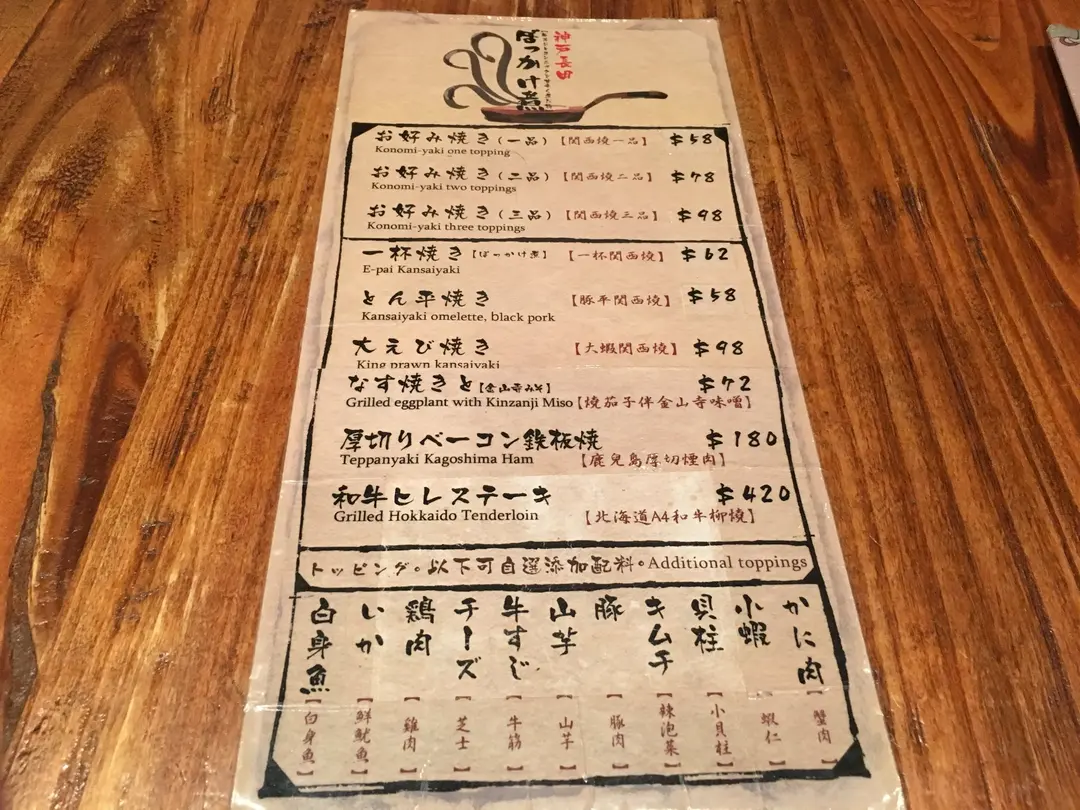 ぼっかけ煮
お好み焼き(一品)【関西燒一品】 $58
Konomi-yaki one topping
お好み焼き(二品)【関西燒二品】 $78
Konomi-yaki two toppings
お好み焼き(三品)【関西燒三品】 $98
Konomi-yaki three toppings
一杯焼き【ぼっかけ煮】【一杯関西燒】 $62
E-pai Kansaiyaki
とん平焼き【豚平関西燒】 $58
Kansaiyaki omelette, black pork
大えび焼き【大蝦関西燒】 $98
King prawn kansaiyaki
なす焼きと【金山寺みそ】 $72
Grilled eggplant with Kinzanji Miso【燒茄子伴金山寺味噌】
厚切りベーコン鉄板焼 $180
Teppanyaki Kagoshima Ham【鹿兒島厚切煙肉】
和牛ヒレステーキ $420
Grilled Hokkaido Tenderloin【北海道A4和牛柳燒】
トッピング。以下可自選添加配料。Additional toppings
かに肉【蟹肉】
小蝦【蝦仁】
貝柱【小貝柱】
キムチ【辣泡菜】
豚【豚肉】
山芋【山芋】
牛すじ【牛筋】
チーズ【芝士】
鶏肉【雞肉】
いか【鮮魷魚】
白身魚【白身魚】